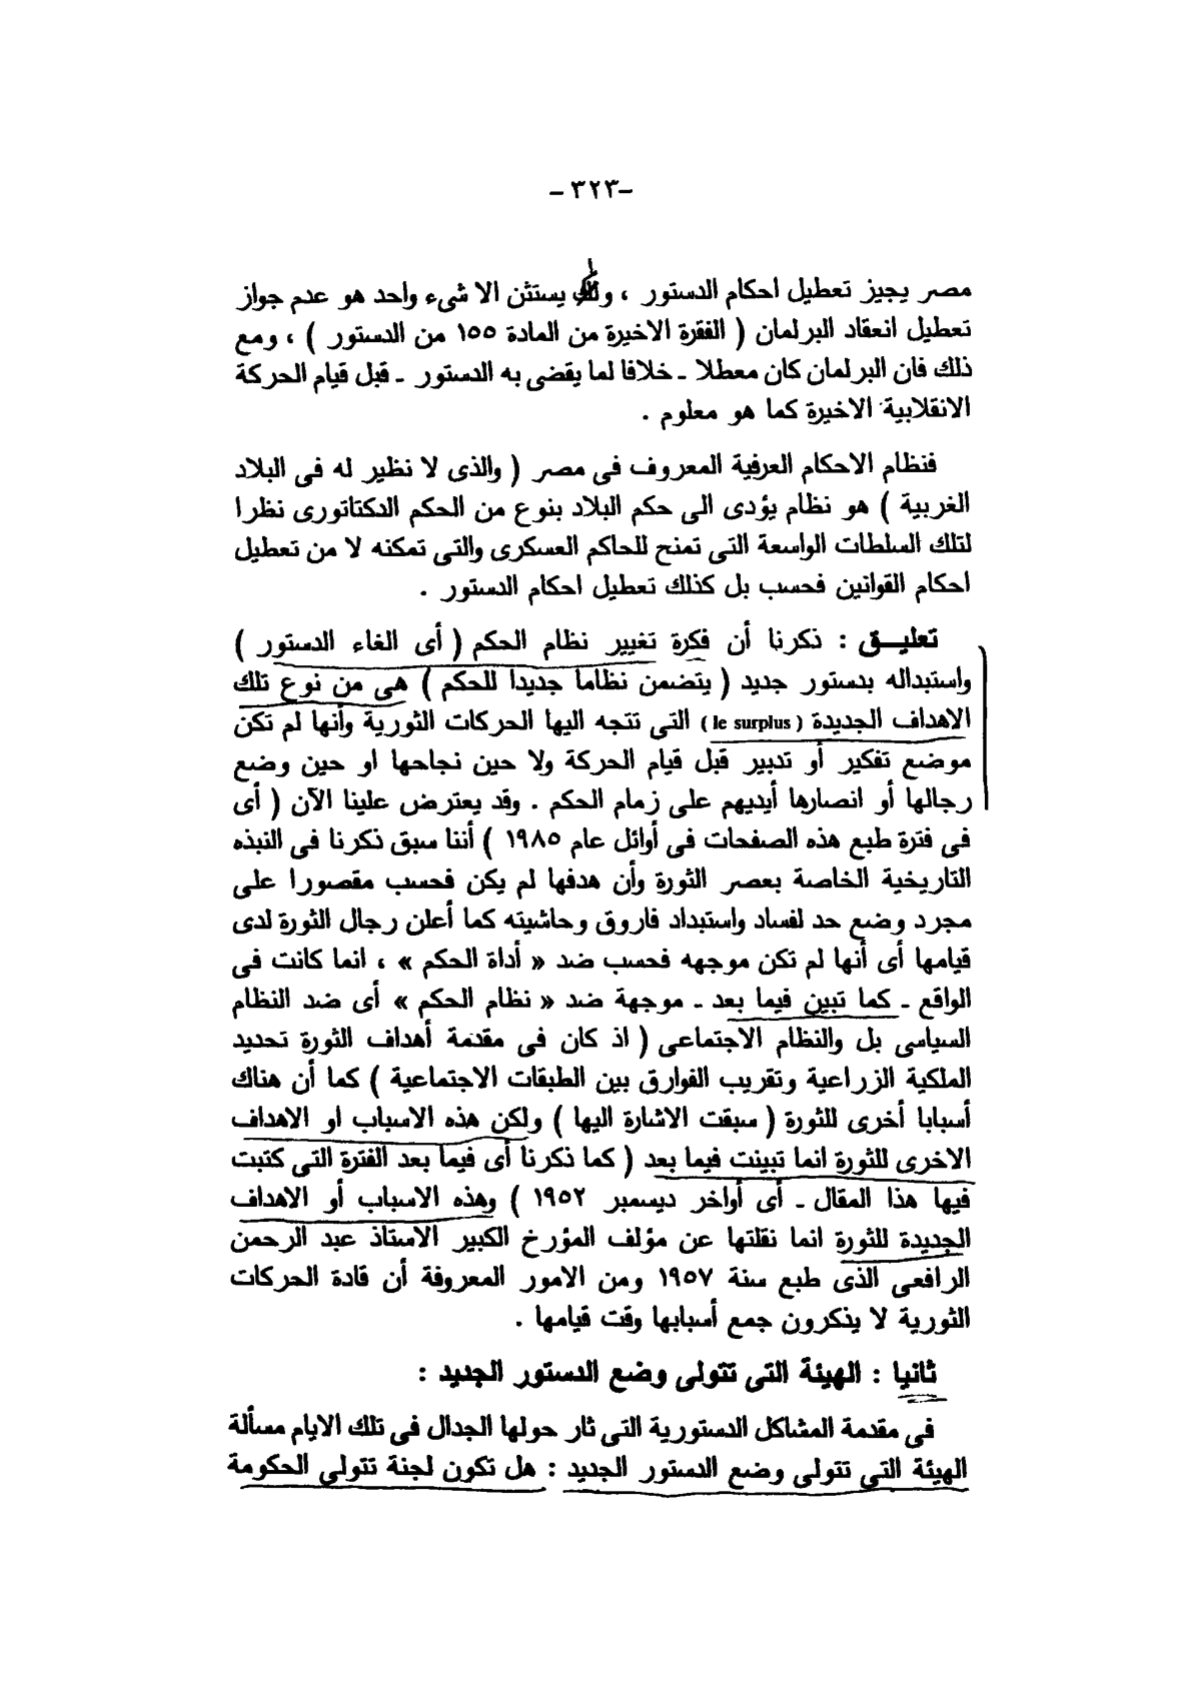 -٣٢٣-
مصر يجيز تعطيل احكام الدستور ، ولم يستثن الا شىء واحد هو عدم جواز
تعطيل انعقاد البرلمان ( الفقرة الاخيرة من المادة ١٥٥ من الدستور ) ، ومع
ذلك فان البرلمان كان معطلا ـ خلافا لما يقضى به الدستور ـ قبل قيام الحركة
الانقلابية الاخيرة كما هو معلوم .
فنظام الاحكام العرفية المعروف فى مصر ( والذى لا نظير له فى البلاد
الغربية ) هو نظام يؤدى الى حكم البلاد بنوع من الحكم الدكتاتورى نظرا
لتلك السلطات الواسعة التى تمنح للحاكم العسكرى والتى تمكنه لا من تعطيل
احكام القوانين فحسب بل كذلك تعطيل احكام الدستور .
تعليـــق : ذكرنا أن فكرة تغيير نظام الحكم ( أى الغاء الدستور )
واستبداله بدستور جديد ( يتضمن نظاما جديدا للحكم ) هى من نوع تلك
الاهداف الجديدة ( le surplus ) التى تتجه اليها الحركات الثورية وأنها لم تكن
موضع تفكير أو تدبير قبل قيام الحركة ولا حين نجاحها او حين وضع
رجالها أو انصارها أيديهم على زمام الحكم . وقد يعترض علينا الآن ( أى
فى فترة طبع هذه الصفحات فى أوائل عام ١٩٨٥ ) أننا سبق ذكرنا فى النبذه
التاريخية الخاصة بعصر الثورة وأن هدفها لم يكن فحسب مقصورا على
مجرد وضع حد لفساد واستبداد فاروق وحاشيته كما أعلن رجال الثورة لدى
قيامها أى أنها لم تكن موجهه فحسب ضد « أداة الحكم » ، انما كانت فى
الواقع ـ كما تبين فيما بعد ـ موجهة ضد « نظام الحكم » أى ضد النظام
السياسى بل والنظام الاجتماعى ( اذ كان فى مقدمة أهداف الثورة تحديد
الملكية الزراعية وتقريب الفوارق بين الطبقات الاجتماعية ) كما أن هناك
أسبابا أخرى للثورة ( سبقت الاشارة اليها ) ولكن هذه الاسباب او الاهداف
الاخرى للثورة انما تبينت فيما بعد ( كما ذكرنا أى فيما بعد الفترة التى كتبت
فيها هذا المقال ـ أى أواخر ديسمبر ١٩٥٢ ) وهذه الاسباب أو الاهداف
الجديدة للثورة انما نقلتها عن مؤلف المؤرخ الكبير الاستاذ عبد الرحمن
الرافعى الذى طبع سنة ١٩٥٧ ومن الامور المعروفة أن قادة الحركات
الثورية لا يذكرون جمع أسبابها وقت قيامها .
ثانيا : الهيئة التى تتولى وضع الدستور الجديد :
فى مقدمة المشاكل الدستورية التى ثار حولها الجدال فى تلك الايام مسألة
الهيئة التى تتولى وضع الدستور الجديد : هل تكون لجنة تتولى الحكومة